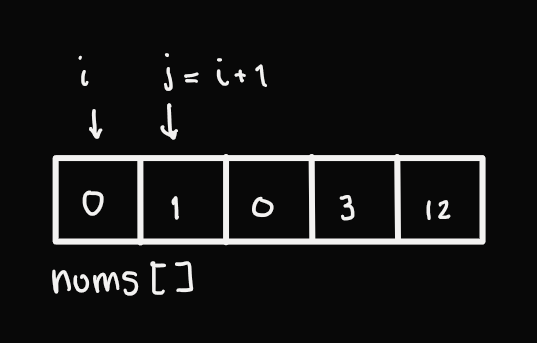 i j = i + 1
0 1 0 3 12
nums []